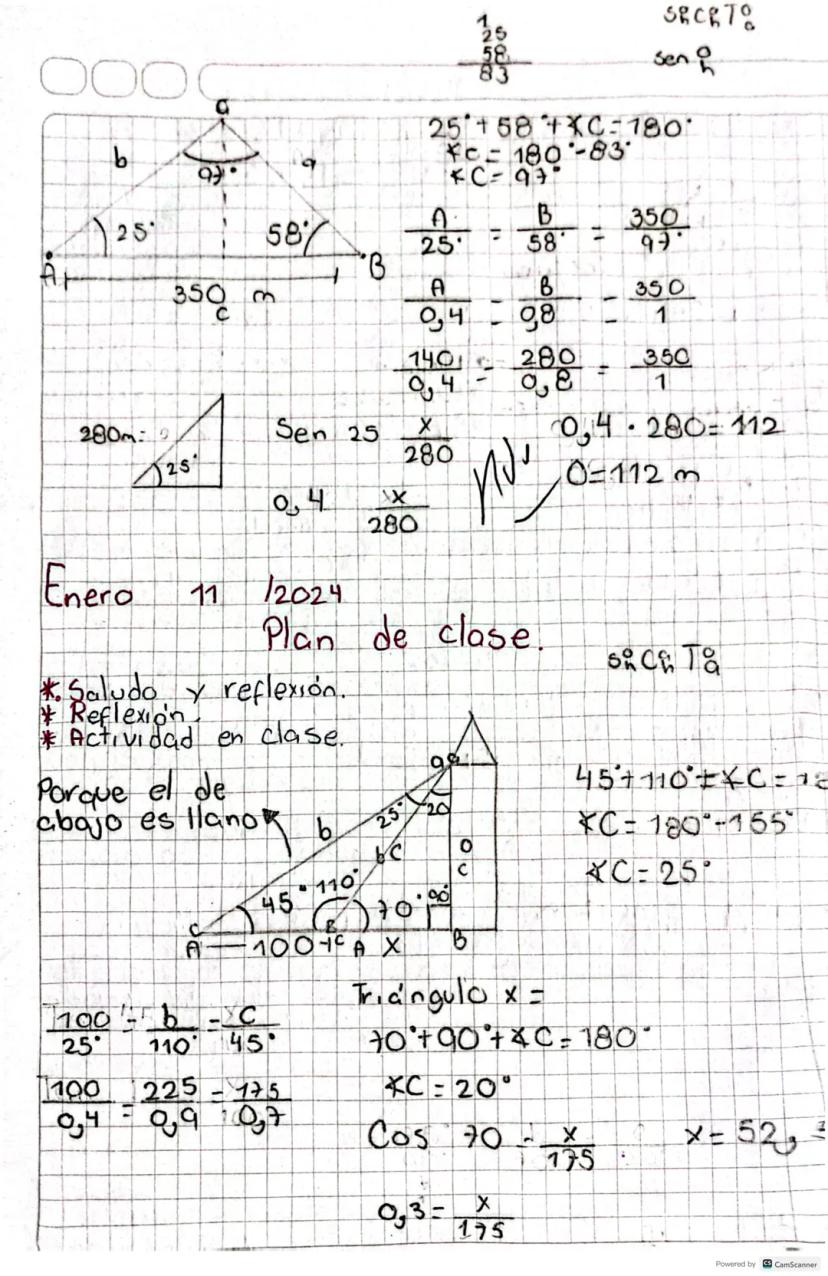 1
25
58
83
SohCahToa
sen o/h
C
b
97°
a
25°
58°
A
B
350 m
c
25° + 58° + ∡C = 180°
∡c = 180° - 83°
∡C = 97°
A/25° = B/58° = 350/97°
A/0,4 = B/0,8 = 350/1
140/0,4 = 280/0,8 = 350/1
280m:
25°
Sen 25 x/280
0,4 x/280
0,4 · 280 = 112
O = 112 m
Enero 11 /2024
Plan de clase.
SohCahToa
*. Saludo y reflexión.
* Reflexión.
* Actividad en clase.
Porque el de
abajo es llano
b
25°
20
45°
110°
70°
90°
100
A
x
B
45° + 110° + ∡C =
∡C = 180° - 155°
∡C = 25°
Triángulo x =
70° + 90° + ∡C = 180°
∡C = 20°
100/25° = b/110° = C/45°
100/0,4 = 225/0,9 = 175/0,7
Cos 70 = x/175
x = 52,
0,3 = x/175
Powered by CS CamScanner